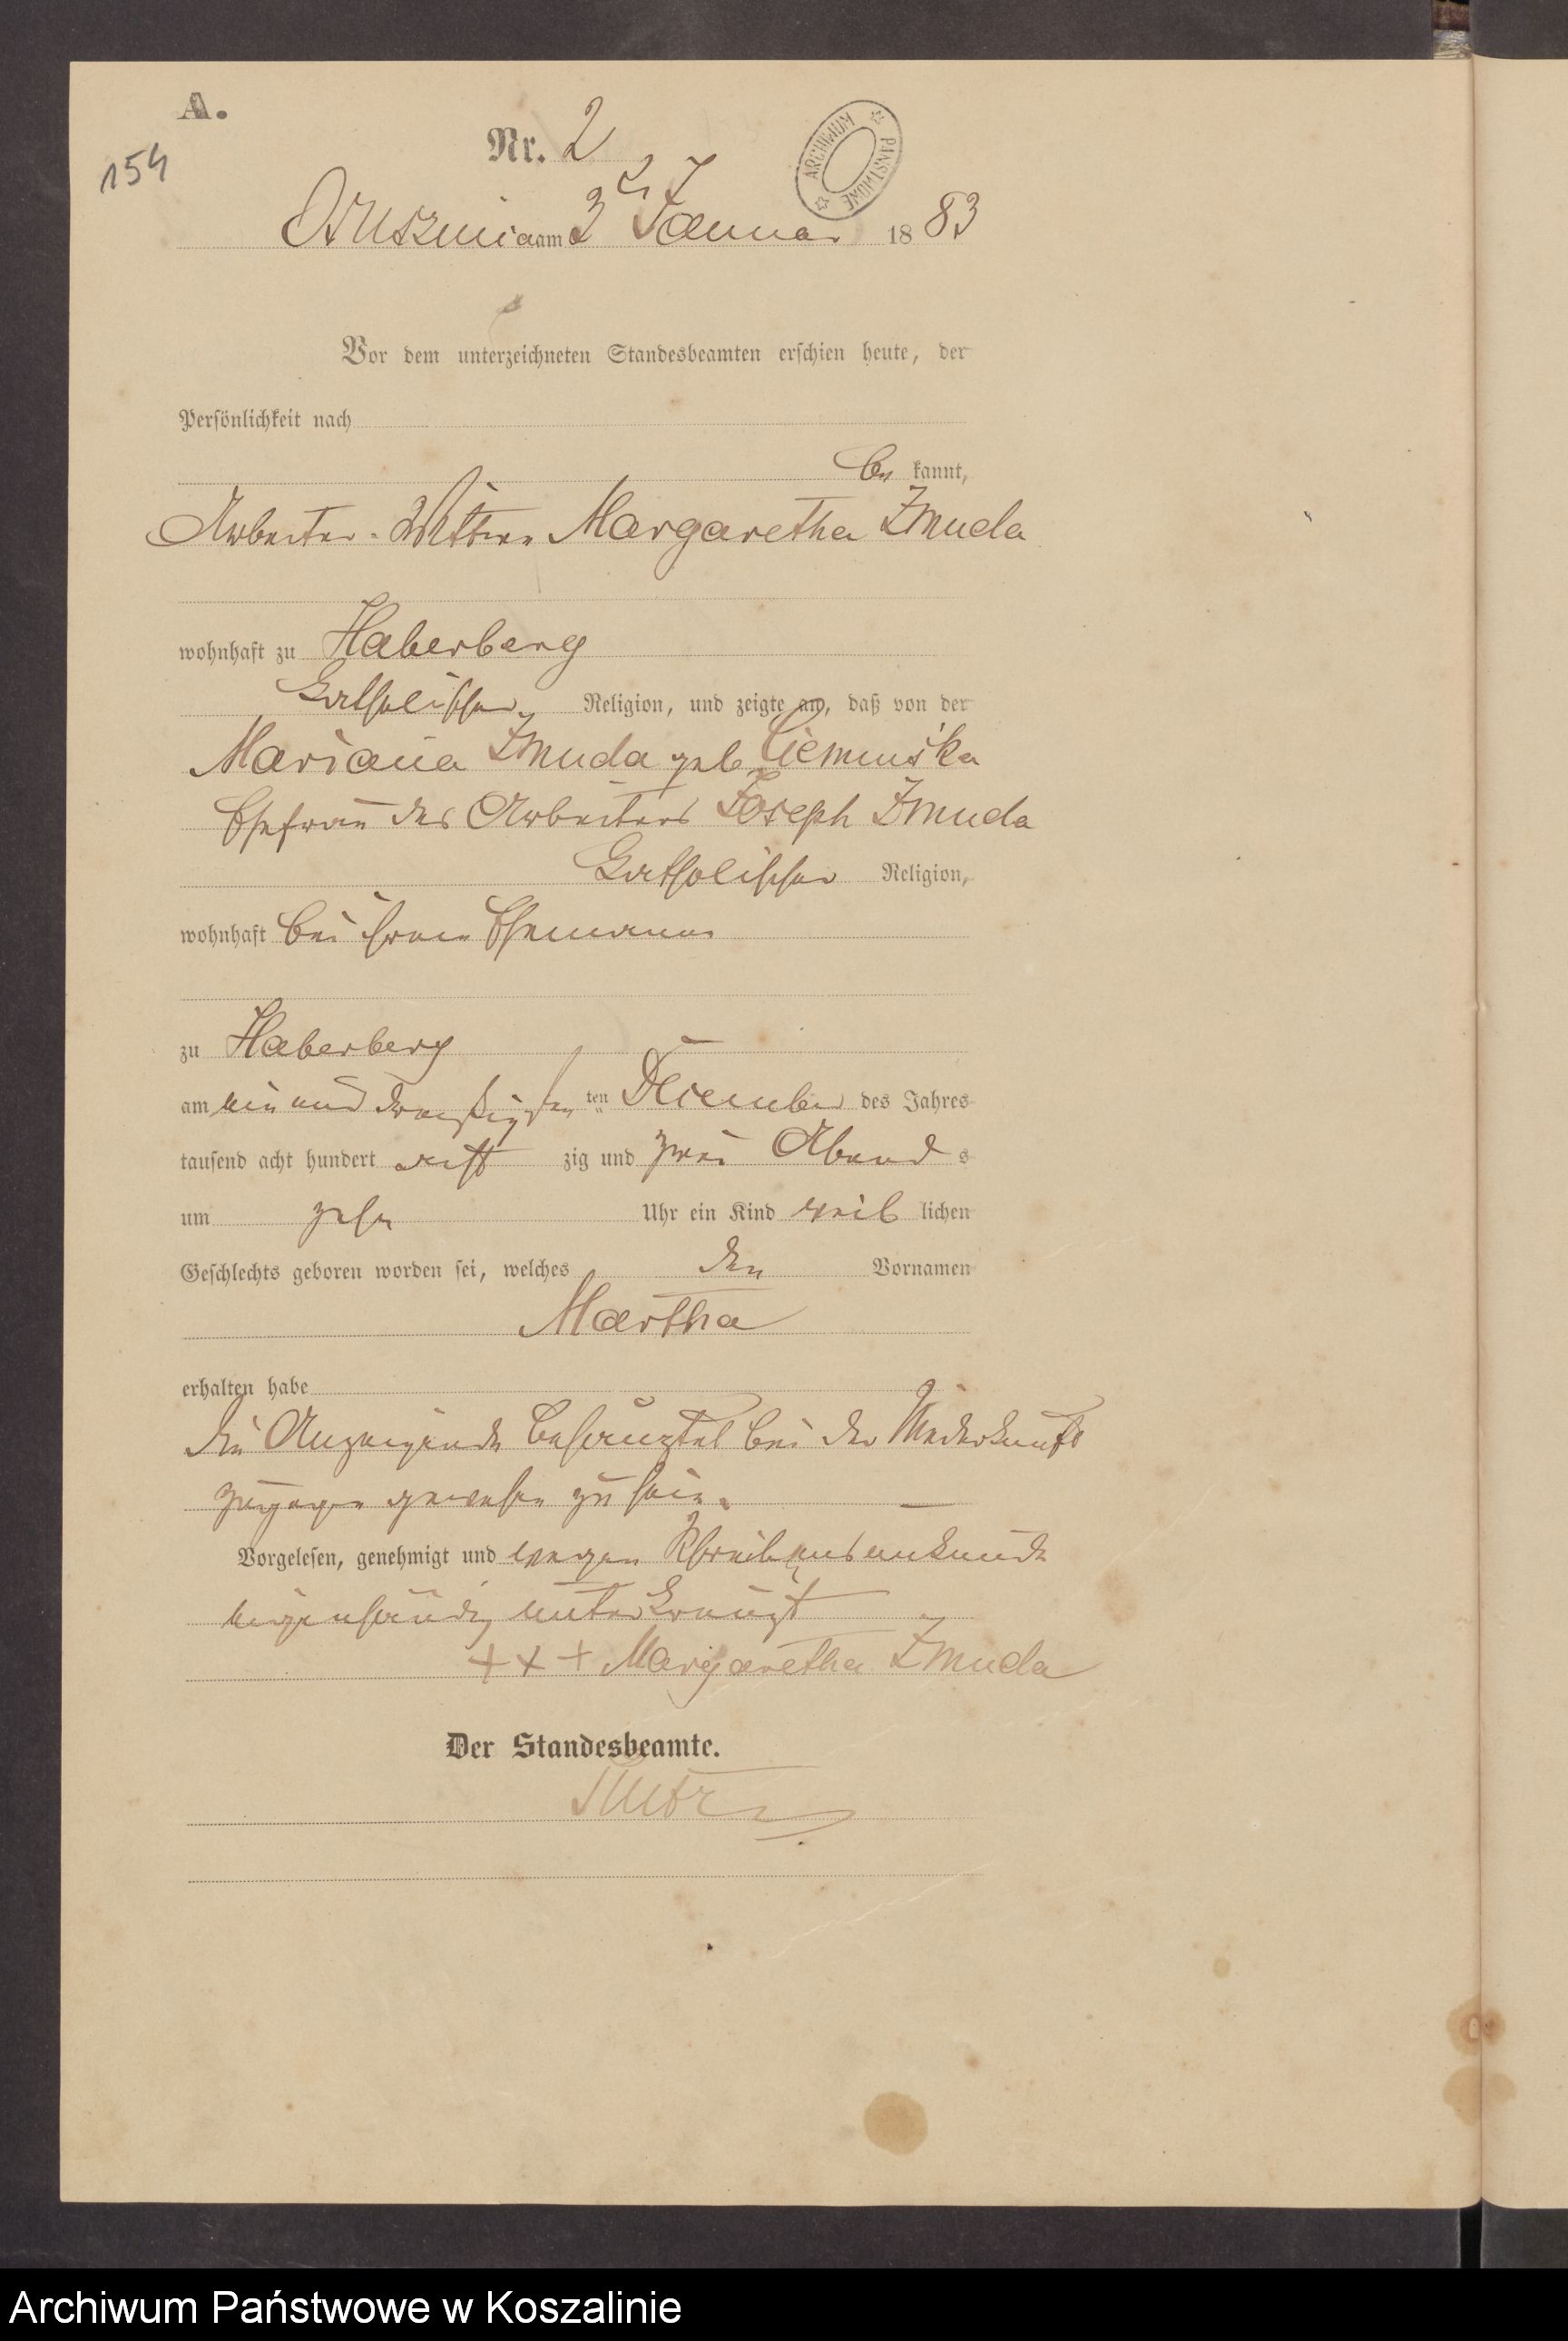 A.
154
Nr. 2
ARCHIWUM PAŃSTWOWE
Osusznica am 3ten Januar 1883
Vor dem unterzeichneten Standesbeamten erschien heute, der
Persönlichkeit nach
be kannt,
Arbeiter-Wittwe Margaretha Zmuda
wohnhaft zu Haberberg
katholischer Religion, und zeigte an, daß von der
Mariana Zmuda geb
Ehefrau des Arbeiters Joseph Zmuda
katholischer Religion,
wohnhaft bei ihrem Ehemanne
zu Haberberg
am ein und dreißigsten ten December des Jahres
tausend acht hundert acht zig und zwei Abend s
um zehn Uhr ein Kind weib lichen
Geschlechts geboren worden sei, welches den Vornamen
Martha
erhalten habe
die Anzeigende bei der Niederkunft
zugegen gewesen zu sein.
Vorgelesen, genehmigt und wegen Schreibensunkunde
eigenhändig unterkreuzt
+++ Margaretha Zmuda
Der Standesbeamte.
Archiwum Państwowe w Koszalinie